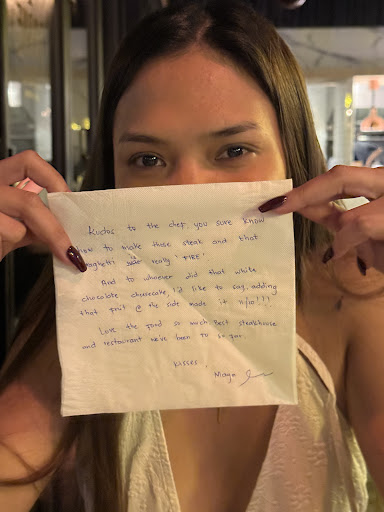 Kudos to the chef you sure know
how to make those steak and that
spaghetti is really 'FIRE'.
And to whoever did that white
chocolate cheesecake, i'd like to say, adding
that fruit @ the side made it
Love the food so much. Best steakhouse
and restaurant we've been to so far.
Kisses,